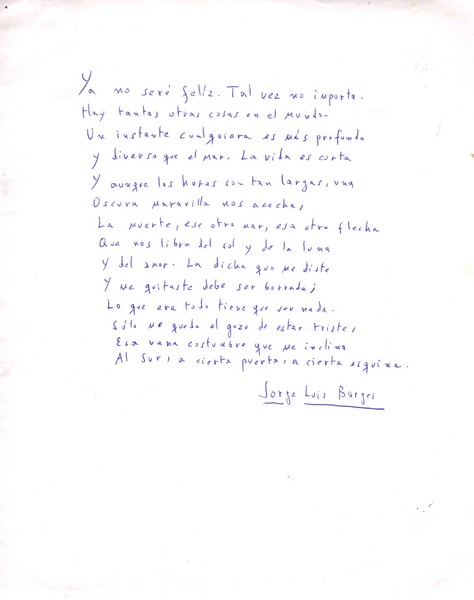 Ya no seré feliz. Tal vez no importa.
Hay tantas otras cosas en el mundo.
Un instante cualquiera es más profundo
y diverso que el mar. La vida es corta
Y aunque las horas son tan largas, una
Oscura maravilla nos acecha,
La muerte, ese otro mar, esa otra flecha
Que nos libra del sol y de la luna
Y del amor. La dicha que me diste
Y me quitaste debe ser borrada;
Lo que era todo tiene que ser nada.
Sólo me queda el gozo de estar triste,
Esa vana costumbre que me inclina
Al Sur, a cierta puerta, a cierta esquina.
Jorge Luis Borges